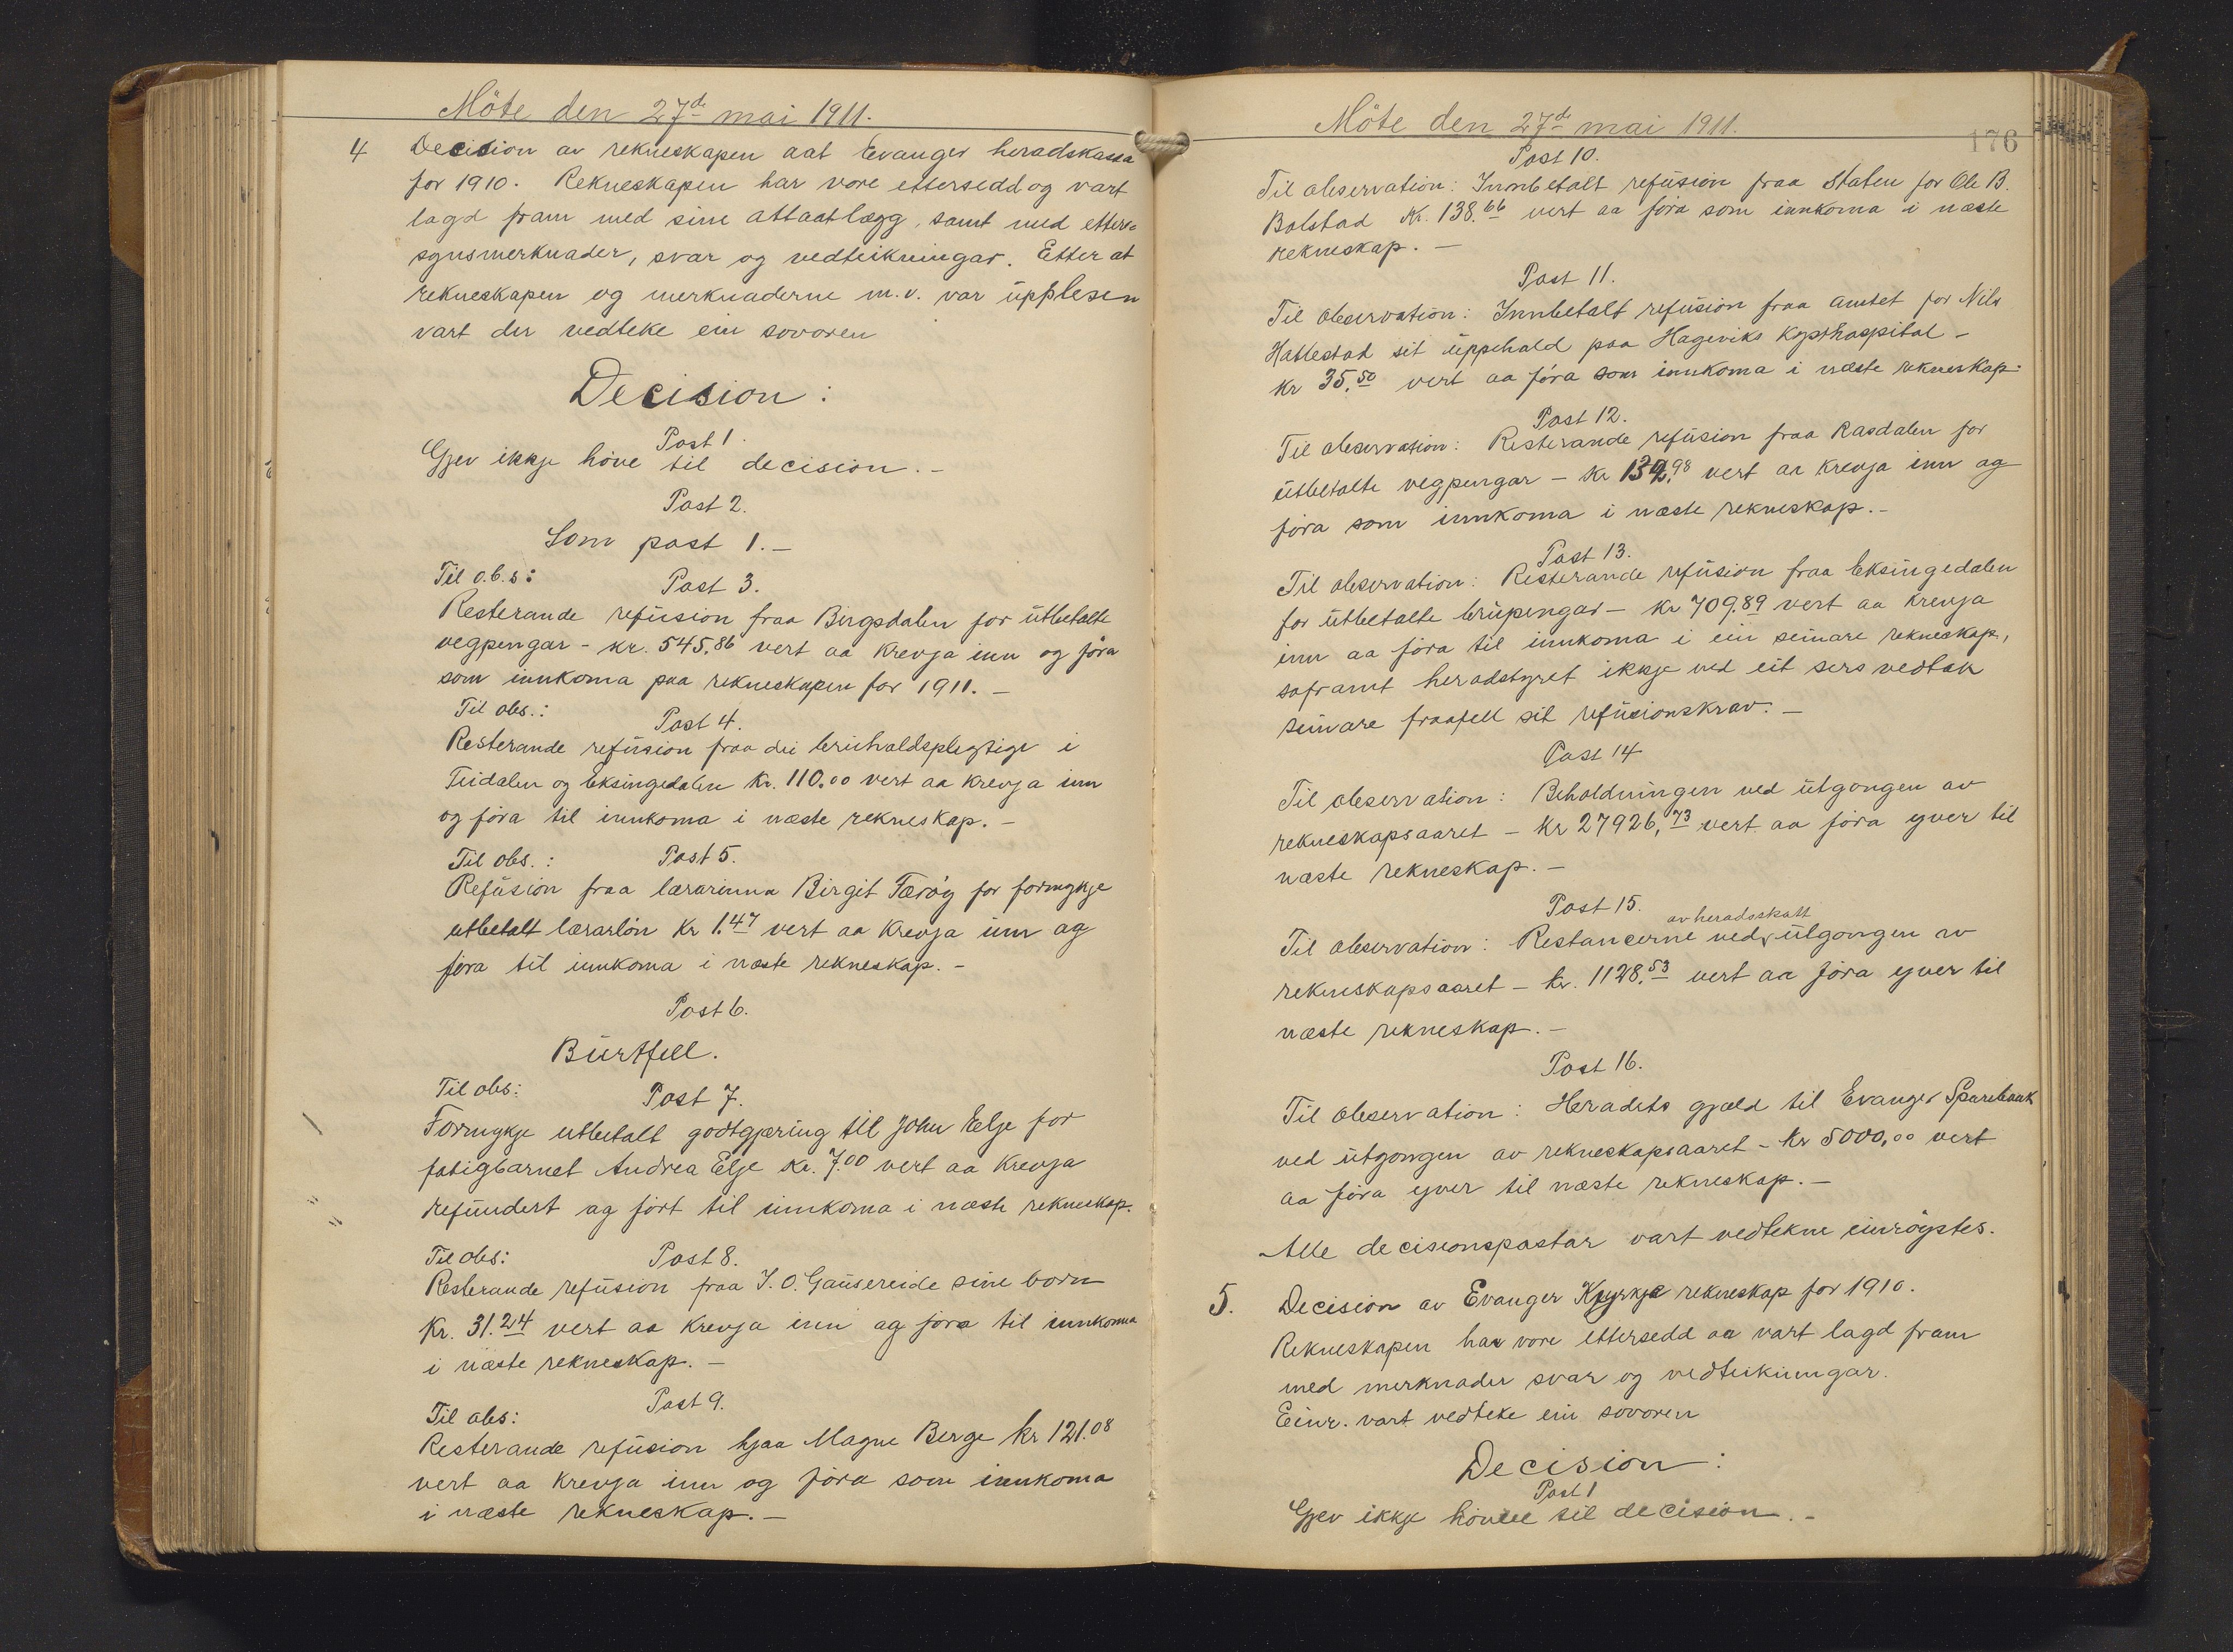 Möte den 27de mai 1911.
4 Decision av rekneskapen aat Evanger heradskassa
for 1910. Rekneskapen har vore ettersedd og vart
lagd fram med sine attaatlægg, samt med etter=
synsmerknader, svar og vedteikningar. Etter at
rekneskapen og merknaderne m.v. var upplesen
vart der vedteke ein sovoren
Decision:
Post 1.
Gjev ikkje höve til decision.-
Post 2.
Som post 1.-
Til o.b.s: Post 3.
Resterande refusion fraa Bergsdalen for utbetalte
vegpengar - kr. 545.86 vert aa krevja inn og föra
som innkoma paa rekneskapen for 1911.-
Til obs.: Post 4.
Resterande refusion fraa dei bruhaldspligtige i
Teidalen og Eksingedalen kr. 110.00 vert aa krevja inn
og föra til innkoma i næste rekneskap.-
Til obs.: Post 5.
Refusion fraa lærarinna Birgit Færöy for formykje
utbetalt lærarlön kr 1.47 vert aa krevja inn og
föra til innkoma i næste rekneskap.-
Post 6.
Burtfell.
Til obs: Post 7.
Formykje utbetalt godtgjæring til John Elje for
fatigbarnet Andrea Elje kr. 7.00 vert aa krevja
refundert og fört til innkoma i næste rekneskap.
Til obs: Post 8.
Resterande refusion fraa J. O. Gausereide sine born
Kr. 31.24 vert aa krevja inn og föra til innkoma
i næste rekneskap.-
Til obs: Post 9.
Resterande refusion hjaa Magne Berge kr 121.08
vert aa krevja inn og föra som innkoma
i næste rekneskap.-
Möte den 27de mai 1911.
176
Post 10.
Til observation: Innbetalt refusion fraa Staten for Ole B.
Bolstad Kr. 138.66 vert aa föra som innkoma i næste
rekneskap.-
Post 11.
Til observation: Innbetalt refusion fraa amtet for Nils
Hatlestad sit upphald paa Hageviks Kysthospital -
kr 35.50 vert aa föra som innkoma i næste rekneskap.
Post 12.
Til observation: Resterande refusion fraa Rasdalen for
utbetalte vegpengar - kr .98 vert aa krevja inn og
föra som innkoma i næste rekneskap.-
Post 13.
Til observation: Resterande refusion fraa Eksingedalen
for utbetalte brupengar - kr 709.89 vert aa krevja
inn aa föra til innkoma i ein seinare rekneskap,
soframt heradstyret ikkje ved eit sers vedtak
seinare fraafell sit refusionskrav.-
Post 14
Til observation: Beholdningen ved utgongen av
rekneskapsaaret - kr 27926,73 vert aa föra yver til
næste rekneskap.-
Post 15.
av heradsskatt
Til observation: Restancerne ved utgongen av
rekneskapsaaret - kr. 1128.53 vert aa föra yver til
næste rekneskap.-
Post 16.
Til observation: Heradets gjæld til Evanger Sparebank
ved utgongen av rekneskapsaaret - kr 5000,00 vert
aa föra yver til næste rekneskap.-
Alle decisionspostar vart vedtekne einröystes.
5. Decision av Evanger Kyrkje rekneskap for 1910.
Rekneskapen har vore ettersedd aa vart lagd fram
med merknader svar og vedteikningar.
Einr. vart vedteke ein sovoren
Decision:
Post 1
Gjev ikkje höve til decision.-